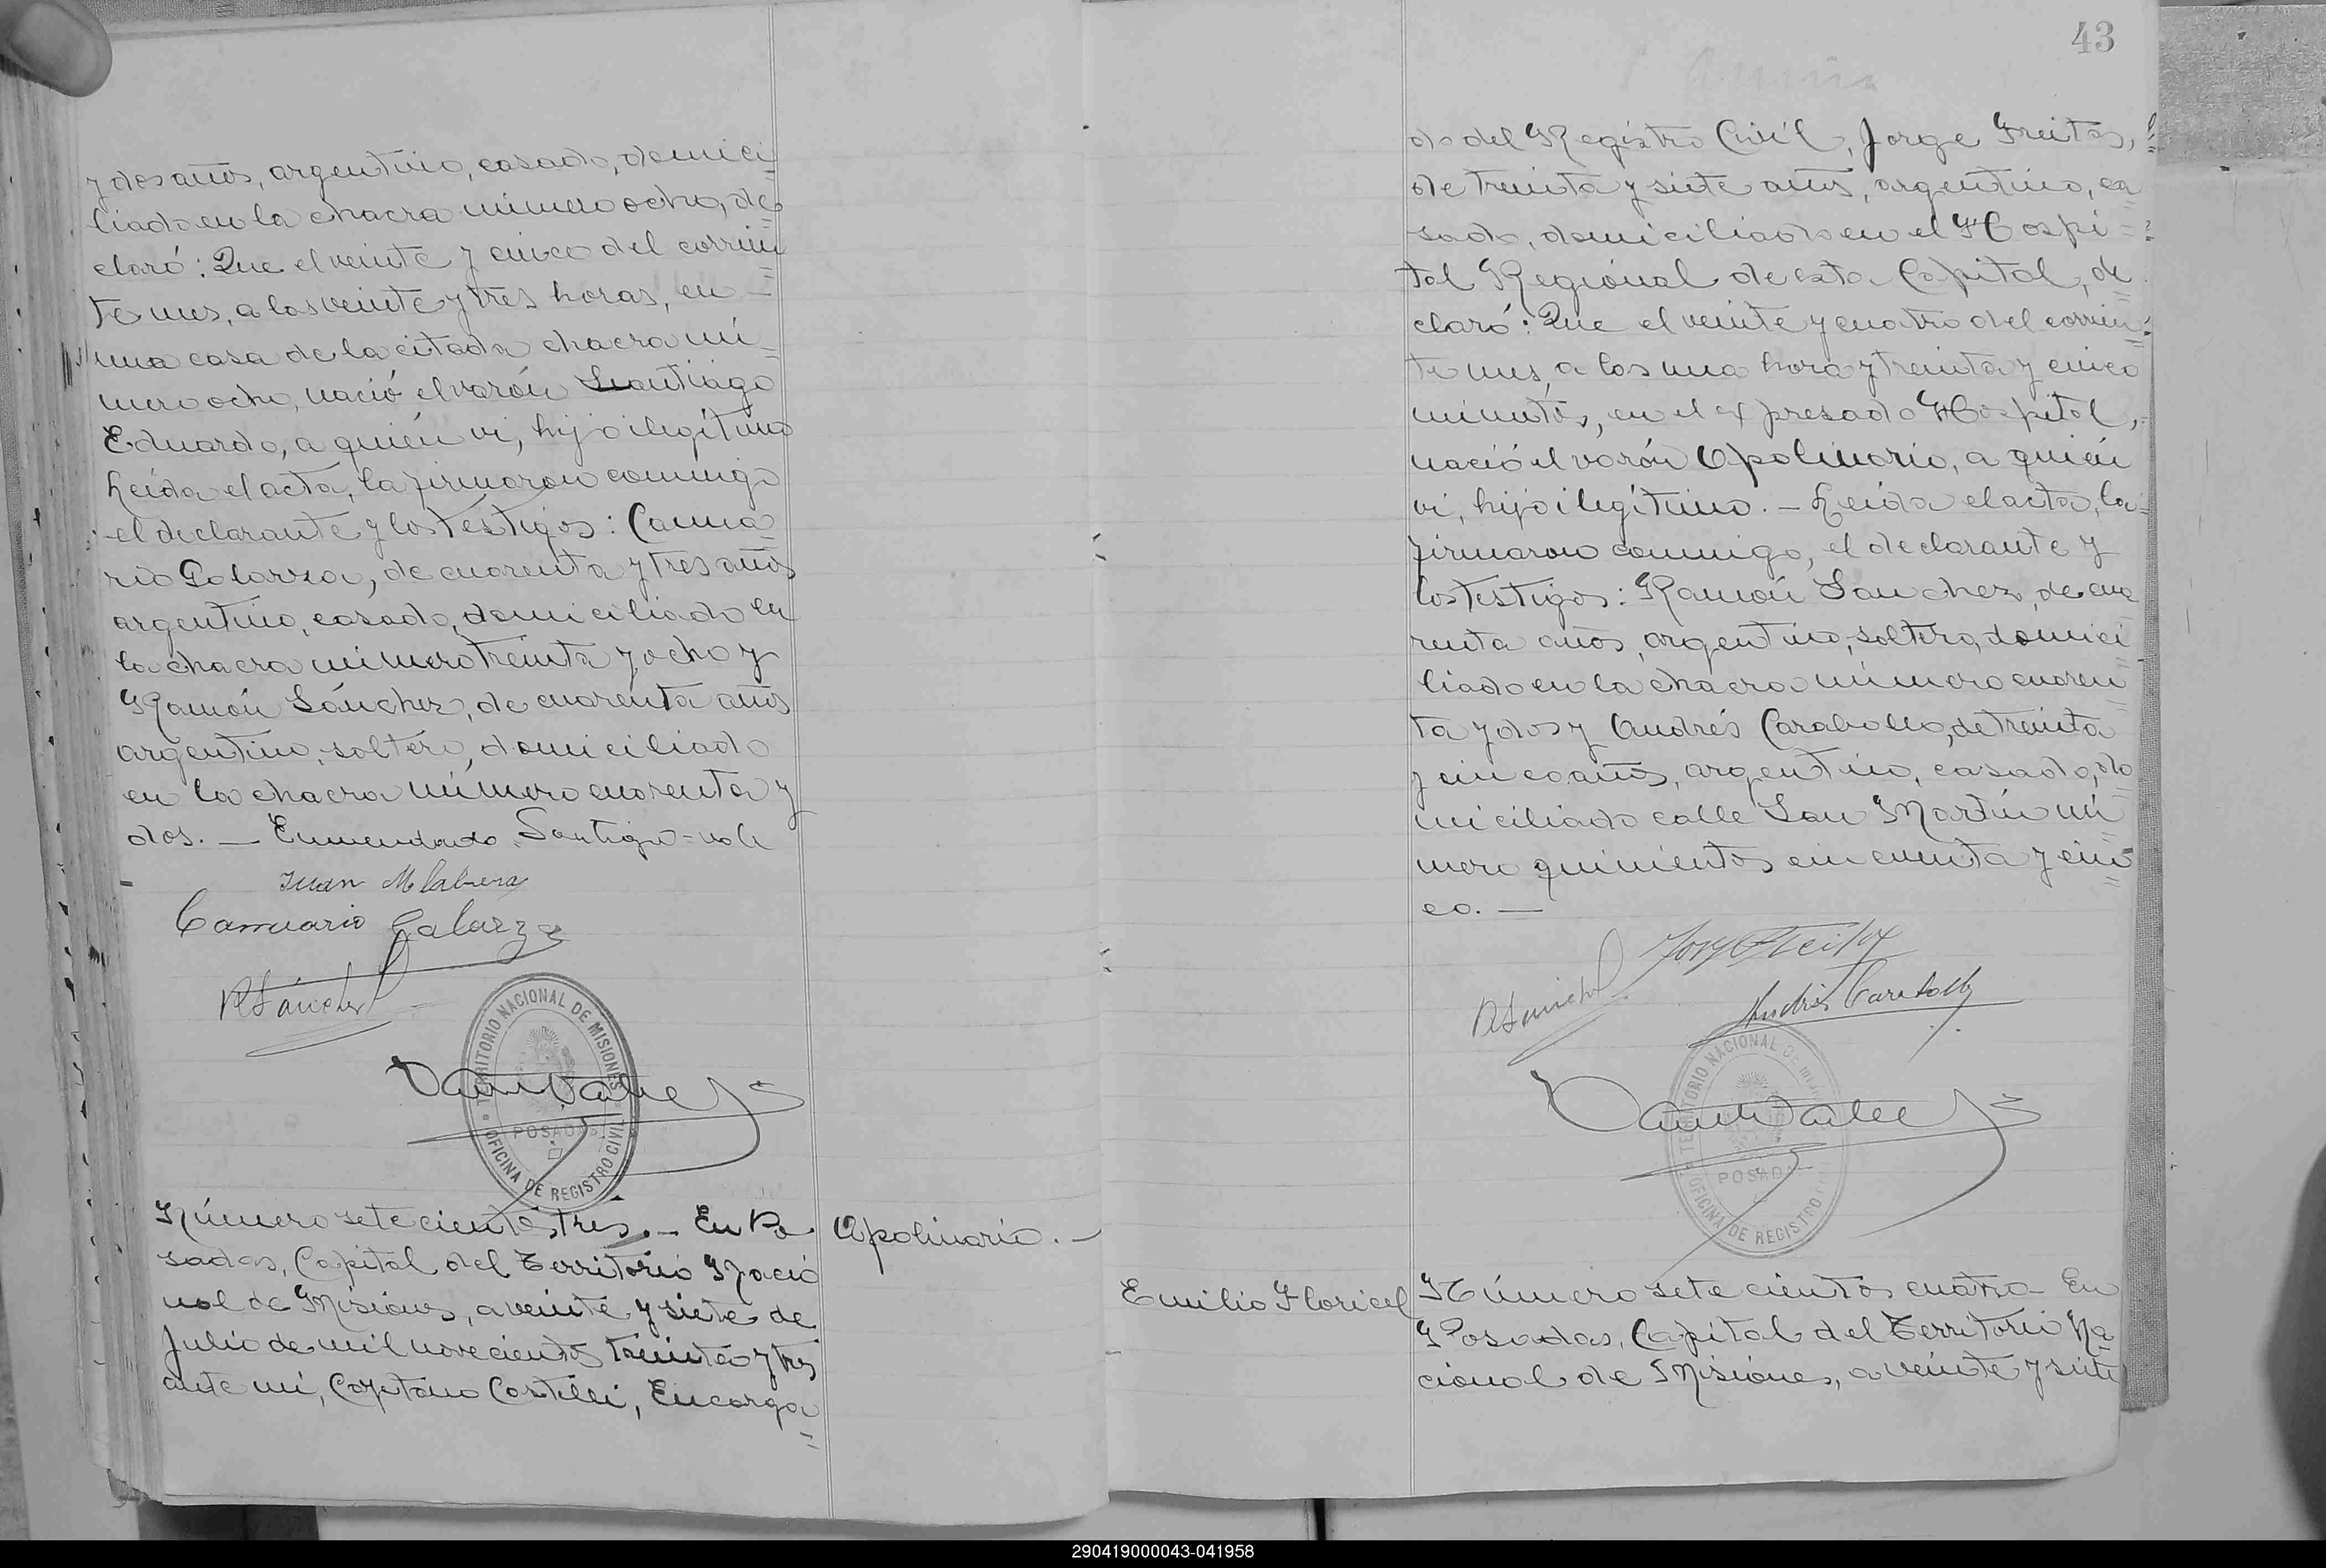 y dos años, argentino, casado, domici=
liado en la chacra número ocho, de=
claró: Que el veinte y cinco del corrien=
te mes, a las veinte y tres horas, en
una casa de la citada chacra nú=
mero ocho, nació el varón Santiago
Eduardo, a quién vi, hijo ilegítimo
Leída el acta, la firmaron conmigo
el declarante y los testigos: Canua=
rio Galarza, de cuarenta y tres años
argentino, casado, domiciliado en
la chacra número treinta y ocho y
Ramón Sánchez, de cuarenta años
argentino, soltero, domiciliado
en la chacra número cuarenta y
dos. — Enmendado Santiago = vale
Juan M Cabrera
Canuario Galarza
R Sánchez
TERRITORIO NACIONAL DE MISIONES
POSADAS
OFICINA DE REGISTRO CIVIL
Número setecientos tres. — En Po
sadas, Capital del Territorio Nacio
nal de Misiones, a veinte y siete de
Julio de mil novecientos treinta y tres
ante mí, Cayetano Castelli, Encarga=
Apolinario. —
43
do del Registro Civil, Jorge Freitas,
de treinta y siete años, argentino, ca=
sado, domiciliado en el Hospi=
tal Regional de esta Capital, de=
claró: Que el veinte y cuatro del corrien=
te mes, a las una hora y treinta y cinco
minutos, en el expresado Hospital,
nació el varón Apolinario, a quién
vi, hijo ilegítimo. — Leída el acta, la
firmaron conmigo, el declarante y
los testigos: Ramón Sanchez, de cua
renta años, argentino, soltero, domici=
liado en la chacra número cuaren
ta y dos y Andrés Caraballo, de treinta
y cinco años, argentino, casado, do=
miciliado calle San Martín nú=
mero quinientos cincuenta y cin=
co. —
Jorge Freitas
R Sánchez
Andrés Caraballo
TERRITORIO NACIONAL DE MISIONES
POSADAS
OFICINA DE REGISTRO CIVIL
Emilio Floricel
Número setecientos cuatro — En
Posadas, Capital del Territorio Na=
cional de Misiones, a veinte y siete
290419000043-041958